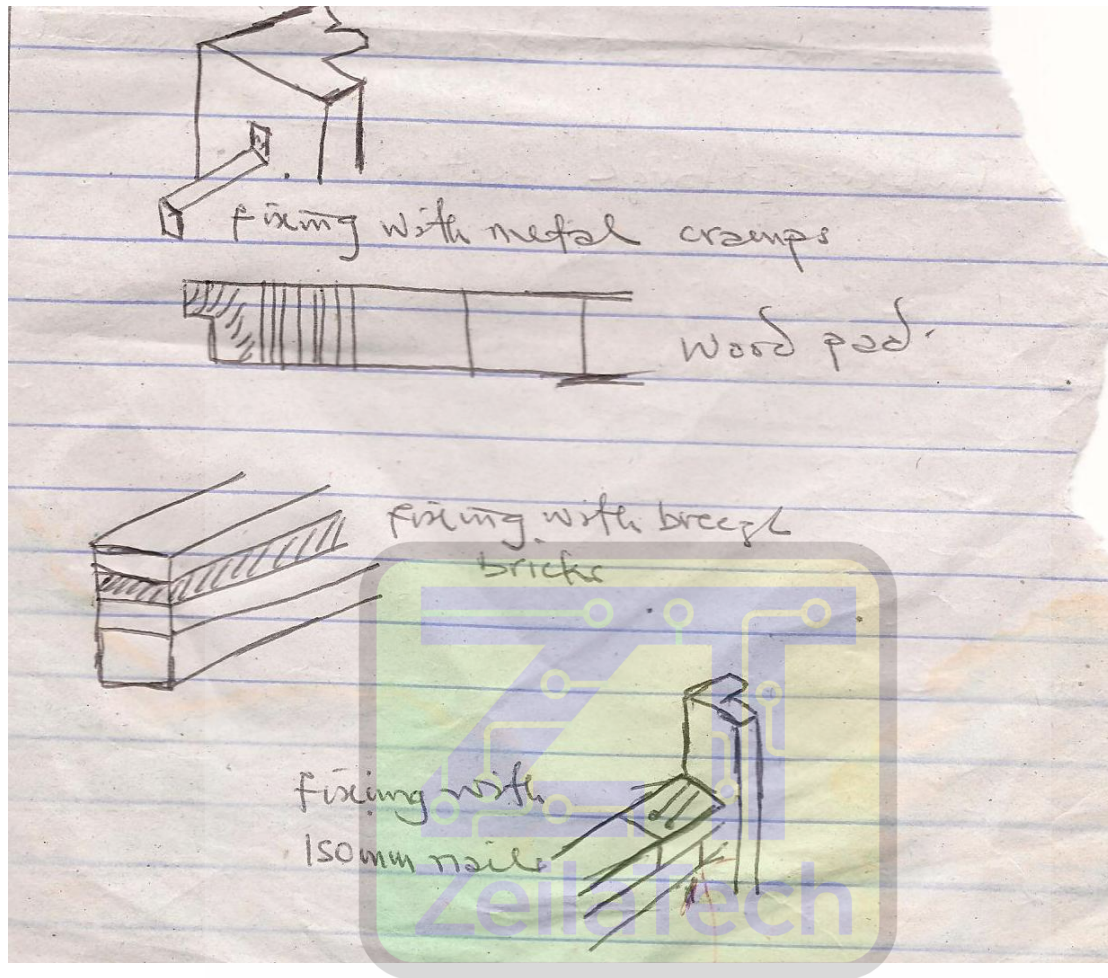 fixing with metal cramps
wood pad.
fixing with breeze
bricks
fixing with
150mm nails
ZT
ZeilaTech